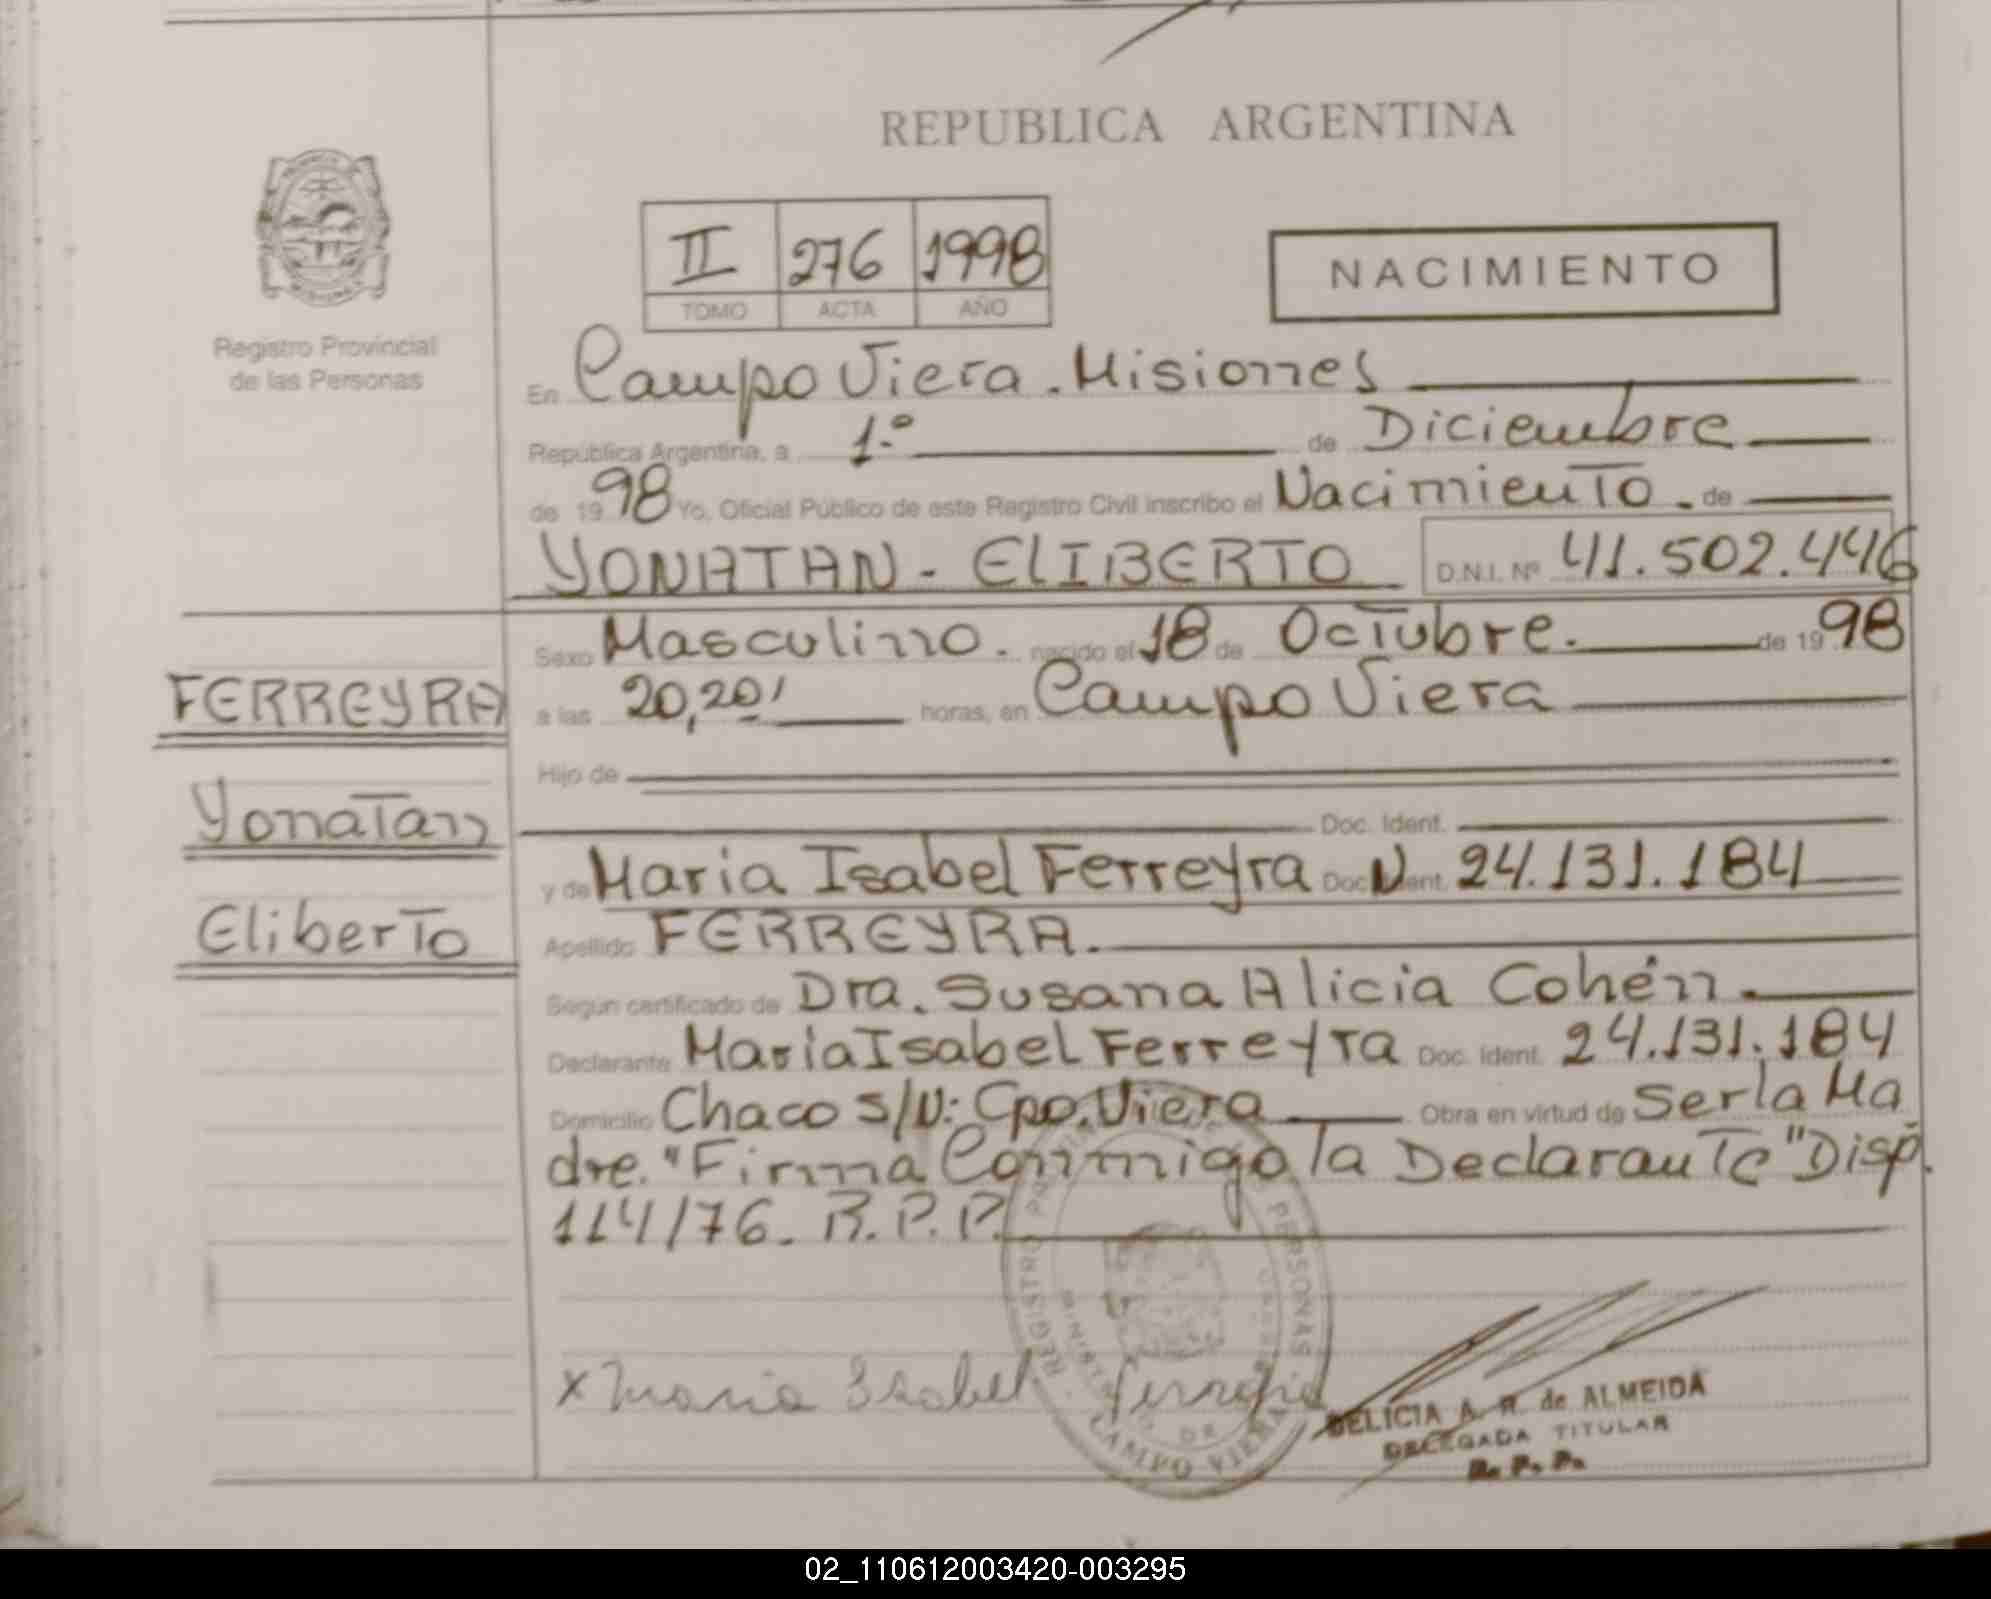 REPUBLICA ARGENTINA
Registro Provincial
de las Personas
II 276 1998
TOMO ACTA AÑO
NACIMIENTO
En Campo Viera. Misiones
República Argentina, a 1.º de Diciembre
de 1998 Yo, Oficial Público de este Registro Civil inscribo el Nacimiento. de
YONATAN - ELIBERTO D.N.I. Nº 41.502.446
Sexo Masculino. nacido el 18 de Octubre. de 1998
FERREYRA
a las 20,20' horas, en Campo Viera
Hijo de
Yonatan
Doc. Ident.
y de Maria Isabel Ferreyra Doc. Ident. 24.131.184
Eliberto
Apellido FERREYRA.
Según certificado de Dra. Susana Alicia Cohén.
Declarante Maria Isabel Ferreyra Doc. Ident. 24.131.184
Domicilio Chaco s/N: Cpo. Viera Obra en virtud de Ser la Ma
dre. "Firma Conmigo la Declarante" Disp.
114/76. R.P.P.
REGISTRO PERSONAS
CAMPO VIERA
x Maria Isabel Ferreyra
DELICIA A. R. de ALMEIDA
DELEGADA TITULAR
R. P. P.
02_110612003420-003295